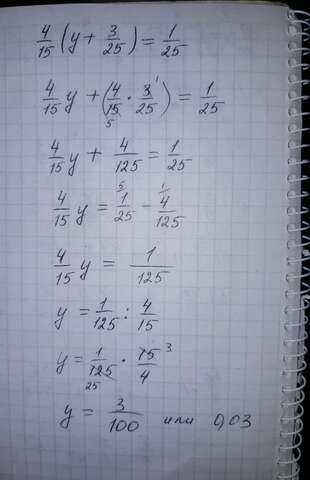 4/15 (y + 3/25) = 1/25
4/15 y + (4/15 5 · 3 1/25) = 1/25
4/15 y + 4/125 = 1/25
4/15 y = 5 1/25 - 1 4/125
4/15 y = 1/125
y = 1/125 : 4/15
y = 1/125 25 · 15 3/4
y = 3/100 или 0,03